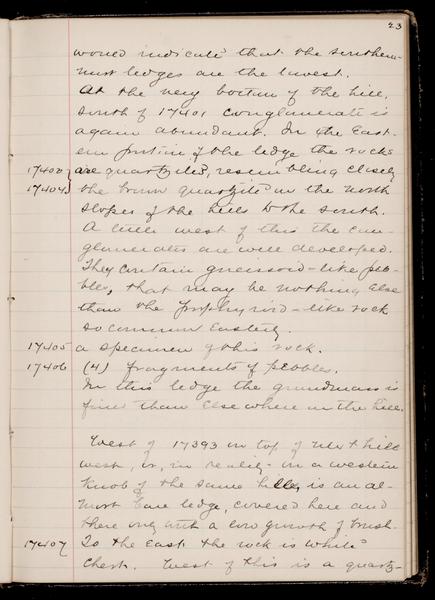 23
would indicate that the southern-
most ledges are the lowest.
At the very bottom of the hill,
south of 17401 conglomerate is
again abundant. In the East-
ern portion of the ledge the rocks
17402 are quartzites, resembling closely
17404 the brown quartzite on the north
slopes of the hills to the south.
A little west of this the con-
glomerates are well developed.
They contain gneissoid-like peb-
bles, that may be nothing else
than the porphyroid-like rock
so common easterly.
17405 a specimen of this rock.
17406 (4) fragments of pebbles.
In this ledge the groundmass is
finer than elsewhere on the hill.
West of 17393 on top of next hill
west, or, in reality in a western
knob of the same hill, is an al-
most bare ledge, covered here and
there only with a low growth of brush.
17407 To the East the rock is white
chert. West of this is a quartz-